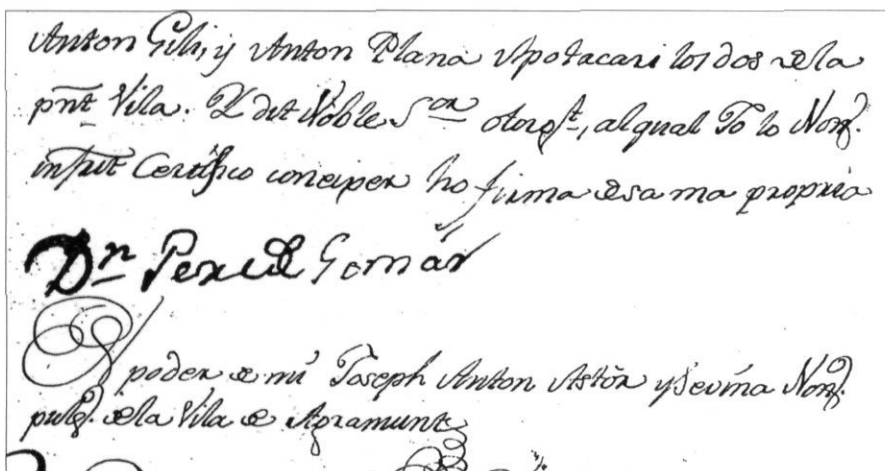 Anton Gili, y Anton Plana Apotacari los dos de la
pnt Vila. Y dit Noble Sor otorgt, al qual Jo lo Nory.
infrit Certifico coneixer ho firma de sa ma propria
Dn Pere de Gomar
poder de mi Joseph Anton Astòr y Navina Nory.
publ. de la Vila de Agramunt